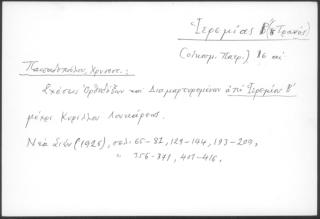 Ἱερεμίας Β΄ (ὁ Τρανός)
(οἰκουμ. Πατρ.) 16 αἰ
Παπαδόπουλου, Χρυσοστ.:
Σχέσεις Ὀρθοδόξων καὶ Διαμαρτυρομένων ἀπὸ Ἱερεμίου Β΄
μέχρι Κυρίλλου Λουκάρεως.
Νέα Σιὼν (1925), σελ. 65-82, 129-144, 193-209,
" 356-371, 401-416,